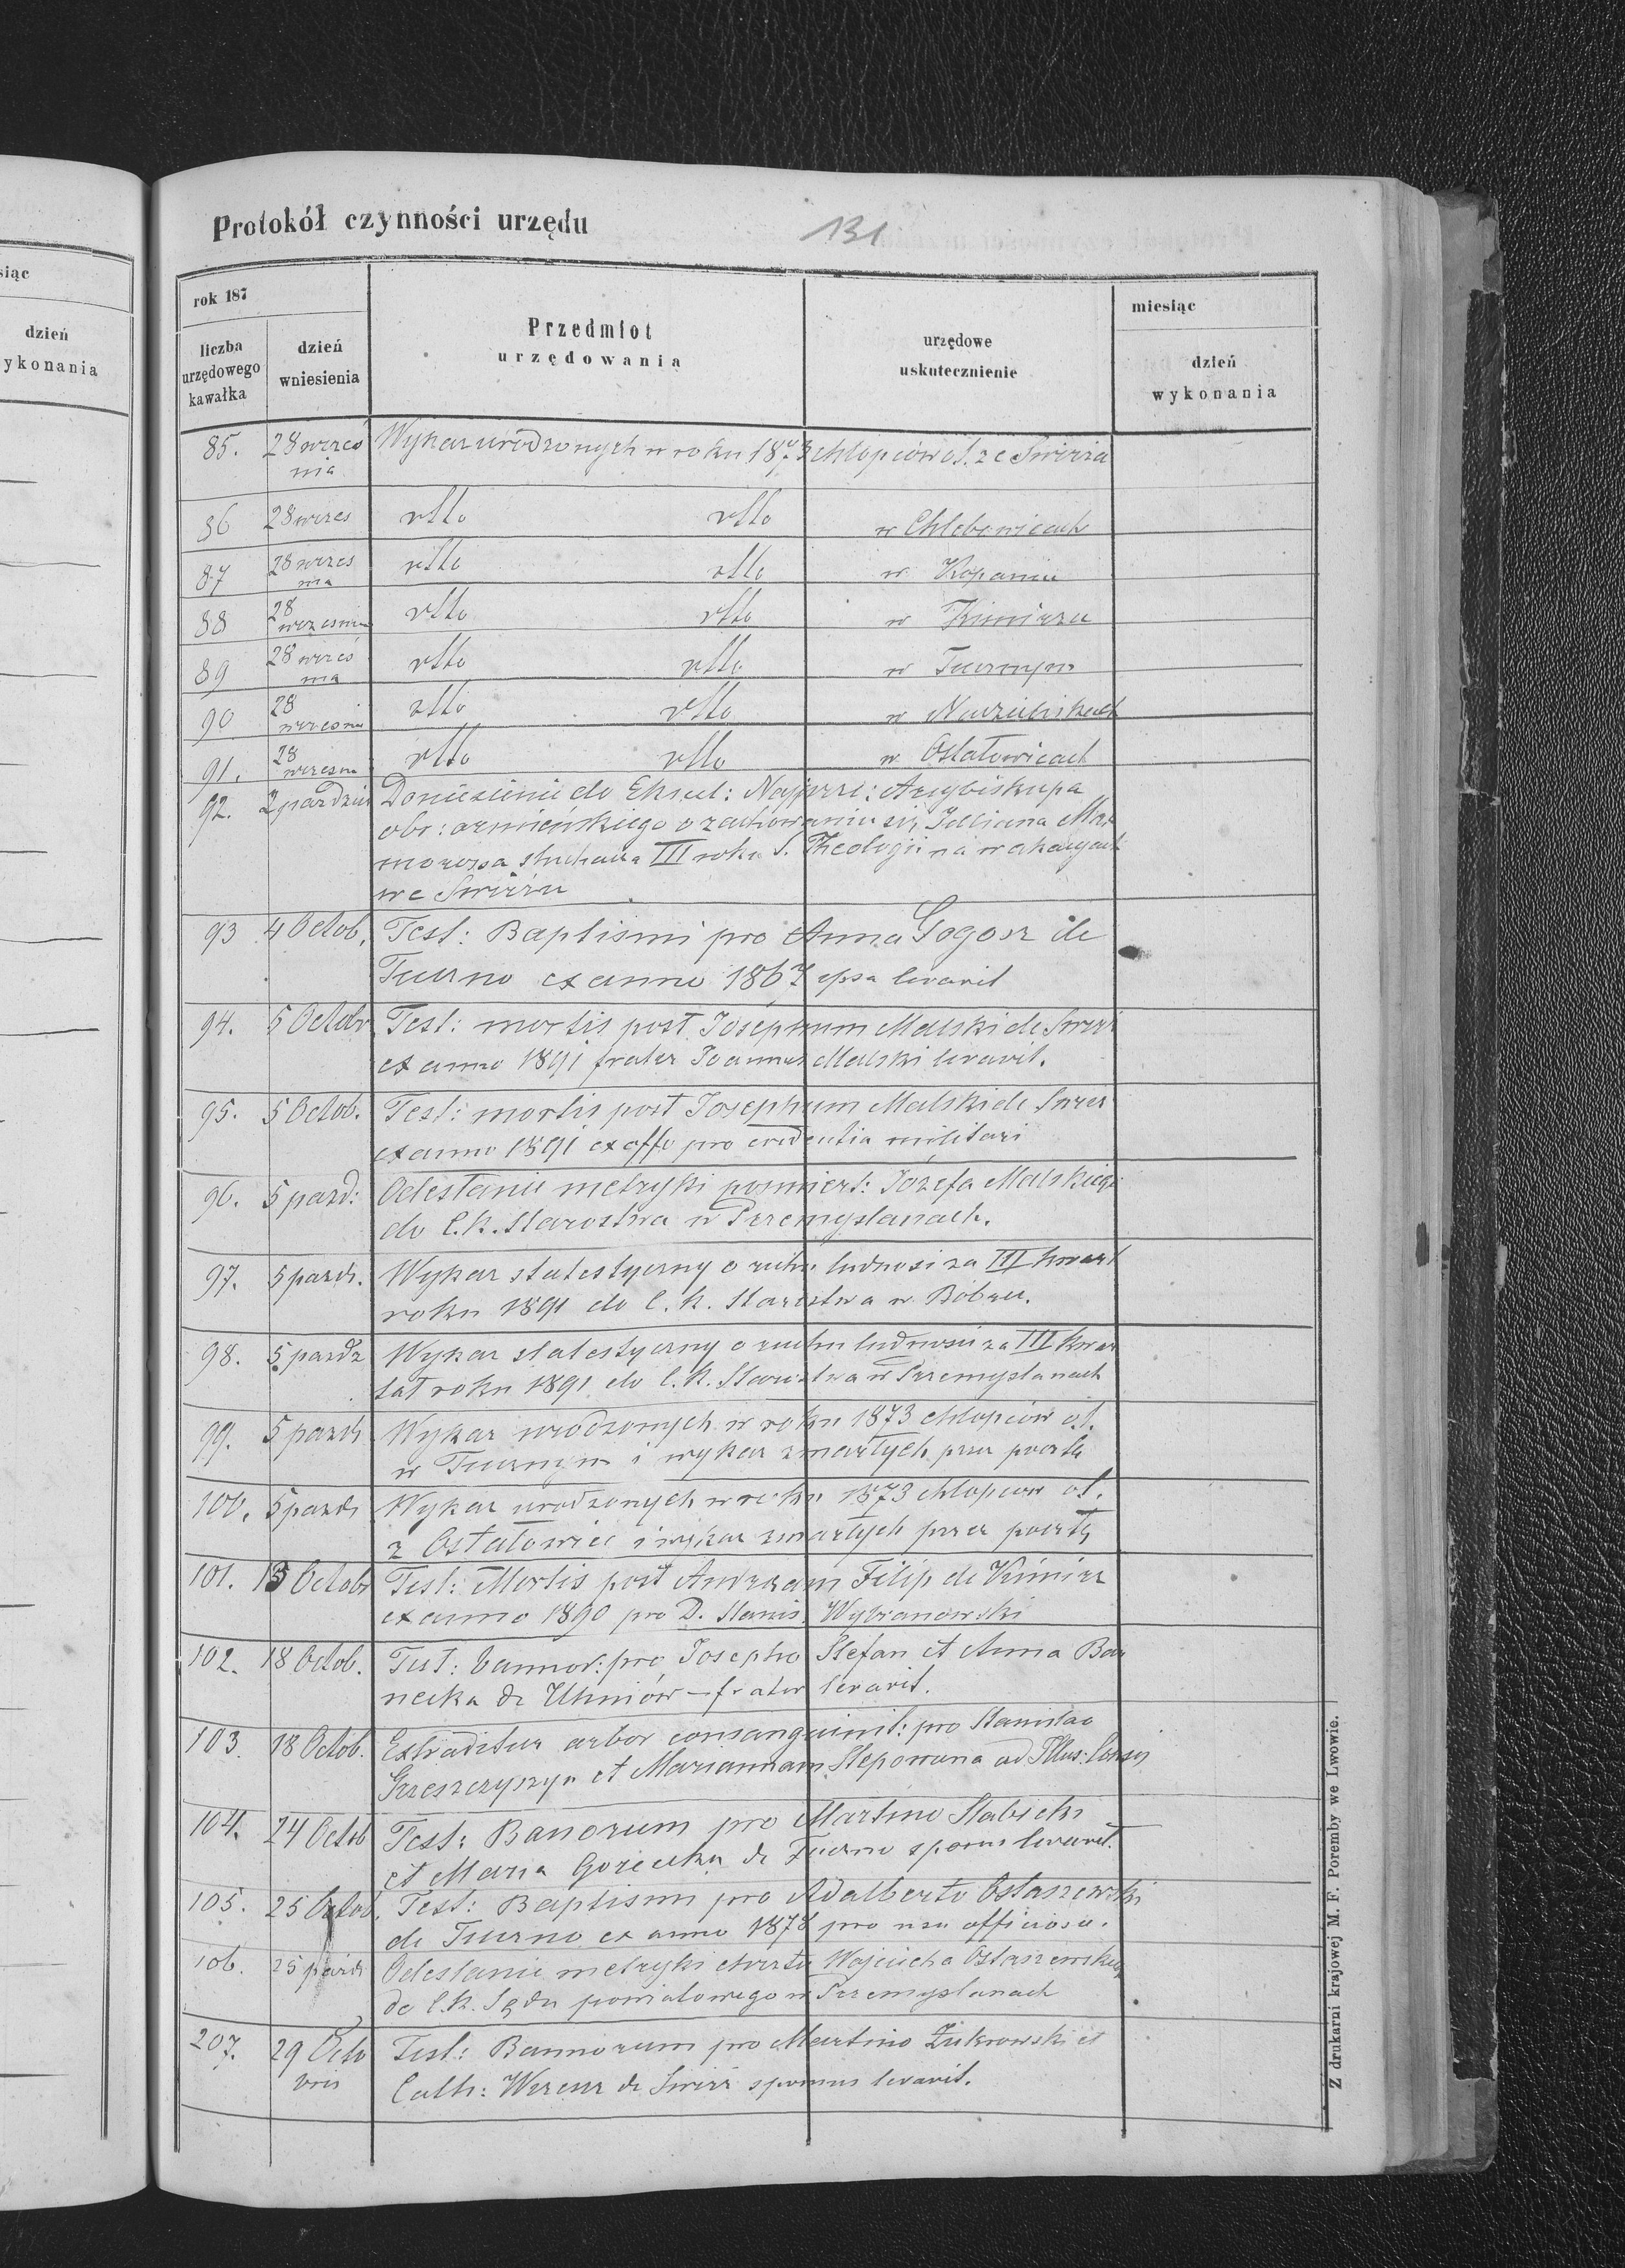 siąc
dzień
ykonania
Protokół czynności urzędu
131
rok 187
miesiąc
liczba urzędowego kawałka
dzień wniesienia
Przedmiot urzędowania
urzędowe uskutecznienie
dzień wykonania
85. 28 wrześ Wykaz urodzonych w roku 1873 chłopców ob. ze Swirza
nia
86 28 wrzes vtto vtto w Chlebowicach
87 28 wrzes vtto vtto w Kopaniu
nia
88 28 vtto vtto w Kimirzu
wrzesnia
89 28 wrześ vtto vtto w Tucznym
nia
90 28 vtto vtto w
wrzesnia
91. 28 vtto vtto w Ostałowicach
wrzesn
92. 2 paździer Doniesienie do Ekscel: Najprze: Arcybiskupa
obr: ormieńskiego o zachowaniu się Juliana Mar
morossa słuchacza III roku S. Theologii na wakacyach
we Swirzu
93 4 Octob. Test: Baptismi pro Anna Gogosz de
Tuczno ex anno 1867 ipsa levavit
94. 5 Octobr Test: mortis post Josephum Malski de Swirz
ex anno 1891 frater Joannes Malski levavit.
95. 5 Octob. Test: mortis post Josephum Malski de Swirz
ex anno 1891 ex offo pro evidentia militari
96. 5 pazd: Odesłanie metryki pośmiert: Józefa Malskiego
do C.k. Starostwa w Przemyslanach.
97. 5 pazdz. Wykaz statestyczny o ruchu ludnosi za III kwart
roku 1891 do C. k. Starostwa w Bóbrce.
98. 5 pazdz Wykaz statestyczny o ruchu ludnosci za III kwar
tał roku 1891 do C.k. Starostwa w Przemyslanach
99. 5 pazdz Wykaz urodzonych w roku 1873 chłopców ob.
w Tucznym i wykaz zmarłych przez pocztę
100. 5 pazdz Wykaz urodzonych w roku 1873 chłopcow ob.
z Ostałowiec i wykaz zmarłych przez pocztę
101. 13 Octobr Test: Mortis post Andream Filip de Kimirz
ex anno 1890 pro D. Stanis. Wybranowski
102. 18 Octob. Test: bannor: pro Josepho Stefan et Anna Ba
necka de Uhniów – frater levavit.
103. 18 Octob. Extraditur arbor consanguinit: pro Stanislao
Grzeszczyszyn et Mariannam Steponana ad Illus: Consis
104. 24 Octob Test: Banorum pro Martino Slabicki
et Maria Gorecka de Tuczno sponus levavit.
105. 25 Octob. Test: Baptismi pro Adalberto Ostaszewski
de Tuczno ex anno 1878 pro usu officioso.
106. 25 paźdz Odesłanie metryki chrztu Wojciecha Ostaszewskiego
do C.k. Sądu powiatowego w Przemyslanach
207. 29 Octo Test: Bannorum pro Martino Żukrowski et
bris Cath: de Swirz sponsus levavit.
Z drukarni krajowej M. F. Poremby we Lwowie.